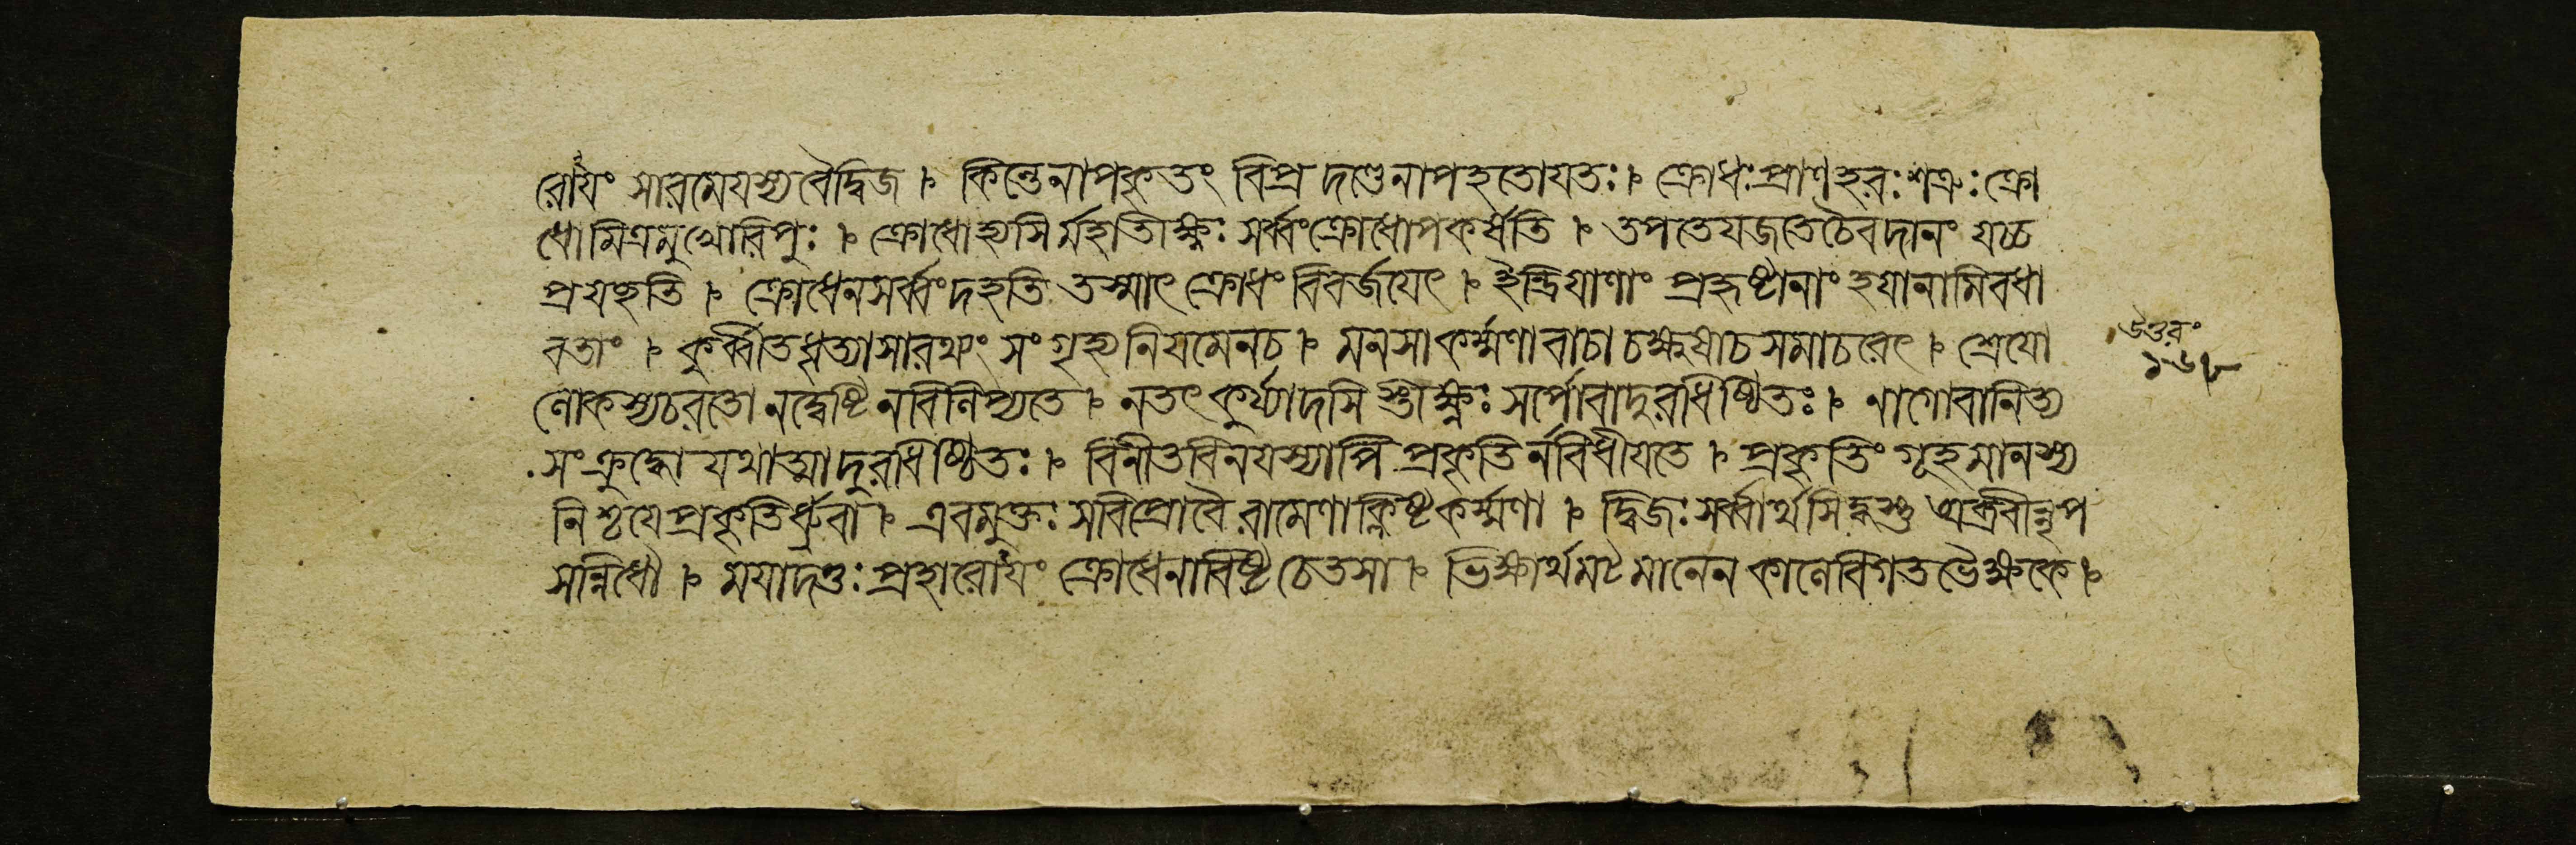 রোযং সারমেযস্য বৈদ্বিজ । কিন্তেনাপকৃতং বিপ্র দণ্ডেনাপহতোযতঃ । ক্রোধঃ প্রাণহরঃ শত্রুঃ ক্রো
ধোমিত্রমুখোরিপুঃ । ক্রোধোহ্যসির্মহাতীক্ষ্ণঃ সর্ব্বংক্রোধোপকর্ষতি । তপতেযজতেচৈবদানং যচ্চ
প্রযচ্ছতি । ক্রোধেনসর্ব্বংদহতি তস্মাৎ ক্রোধং বিবর্জযেৎ । ইন্দ্রিযাণাং প্রহৃষ্টানাং হযানামিবধা
বতাং । কুর্ব্বীতধৃত্যাসারথ্যং সংগৃহ্যনিযমেনচ । মনসাকর্ম্মণাবাচা চক্ষুষাচসমাচরেৎ । শ্রেযো
লোকস্যচরতো নদ্বেষ্টি নবিলিপ্যতে । নতৎকুর্য্যাদসিস্তীক্ষ্ণঃ সর্পোবাদুরধিষ্ঠিতঃ । নাগোবানিত্য
সংক্রুদ্ধো যথাত্মাদুরধিষ্ঠিতঃ । বিনীতবিনযস্যাপি প্রকৃতির্নবিধীযতে । প্রকৃতিং গূহমানস্য
নিশ্চযেপ্রকৃতির্ধ্রুবা । এবমুক্তঃ সবিপ্রোবৈ রামেণাক্লিষ্টকর্ম্মণা । দ্বিজঃ সর্ব্বার্থসিদ্ধস্তু অব্রবীন্নৃপ
সন্নিধৌ । মযাদণ্ডঃ প্রহারোযং ক্রোধেনাবিষ্টচেতসা । ভিক্ষার্থমটমানেন কালেবিগতভৈক্ষকে ।
উত্তরং